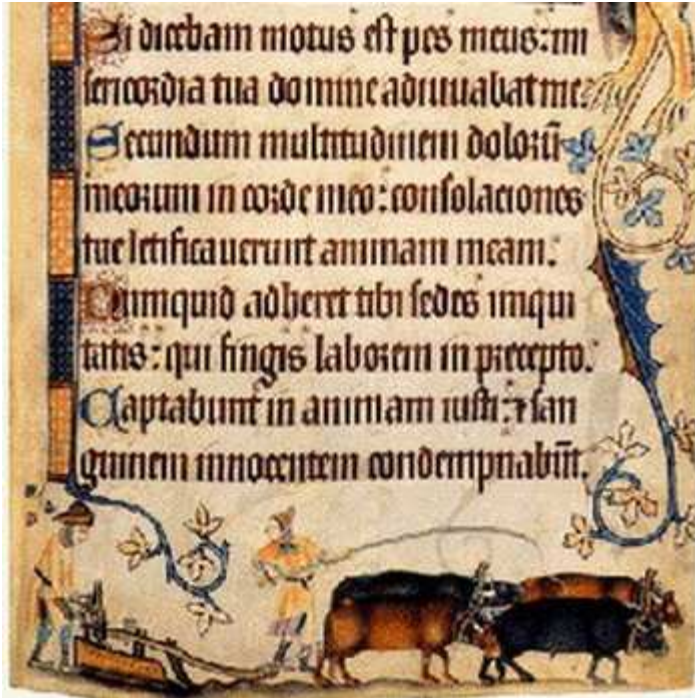 Si dicebam motus est pes meus: mi
sericordia tua domine adiuuabat me.
Secundum multitudinem dolorū
meorum in corde meo: consolaciones
tue letificauerunt animam meam.
Numquid adheret tibi sedes iniqui
tatis: qui fingis laborem in precepto.
Captabunt in animam iusti: ⁊ san
guinem innocentem condempnabūt.